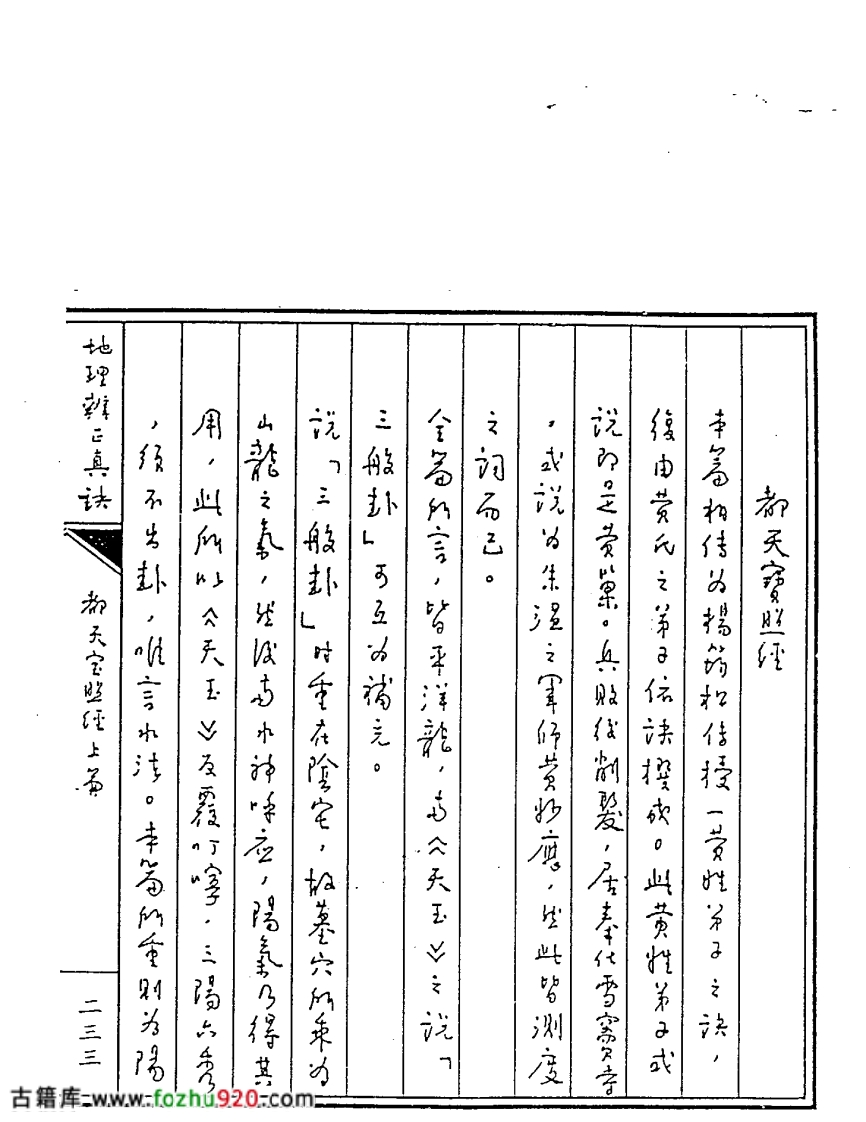 都天寶照經
本篇相传为楊筠松传授一黄姓弟子之訣，
後由黄氏之弟子依訣撰成。此黄姓弟子或
説即是黄巢。兵敗後削髮，居奉化雪竇寺
，或説为朱溫之軍師黄妙應，然此皆測度
之詞而已。
全篇所言，皆平洋龍，与《天玉》之説「
三般卦」可互为補充。
説「三般卦」时重在陰宅，故墓穴所乘为
山龍之氣，然後与水神呼应，陽氣乃得其
用，此所以《天玉》反覆叮嚀，三陽六秀
，須不出卦，唯言水法。本篇所重則为陽
地理辨正真訣
都天宝照經上篇
二三三
古籍库-www.fozhu920.com